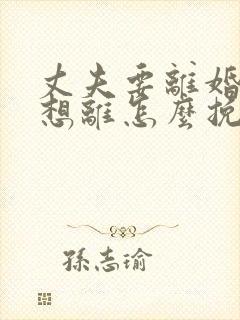 丈夫要離婚
想離怎麼挽
孫志瑜